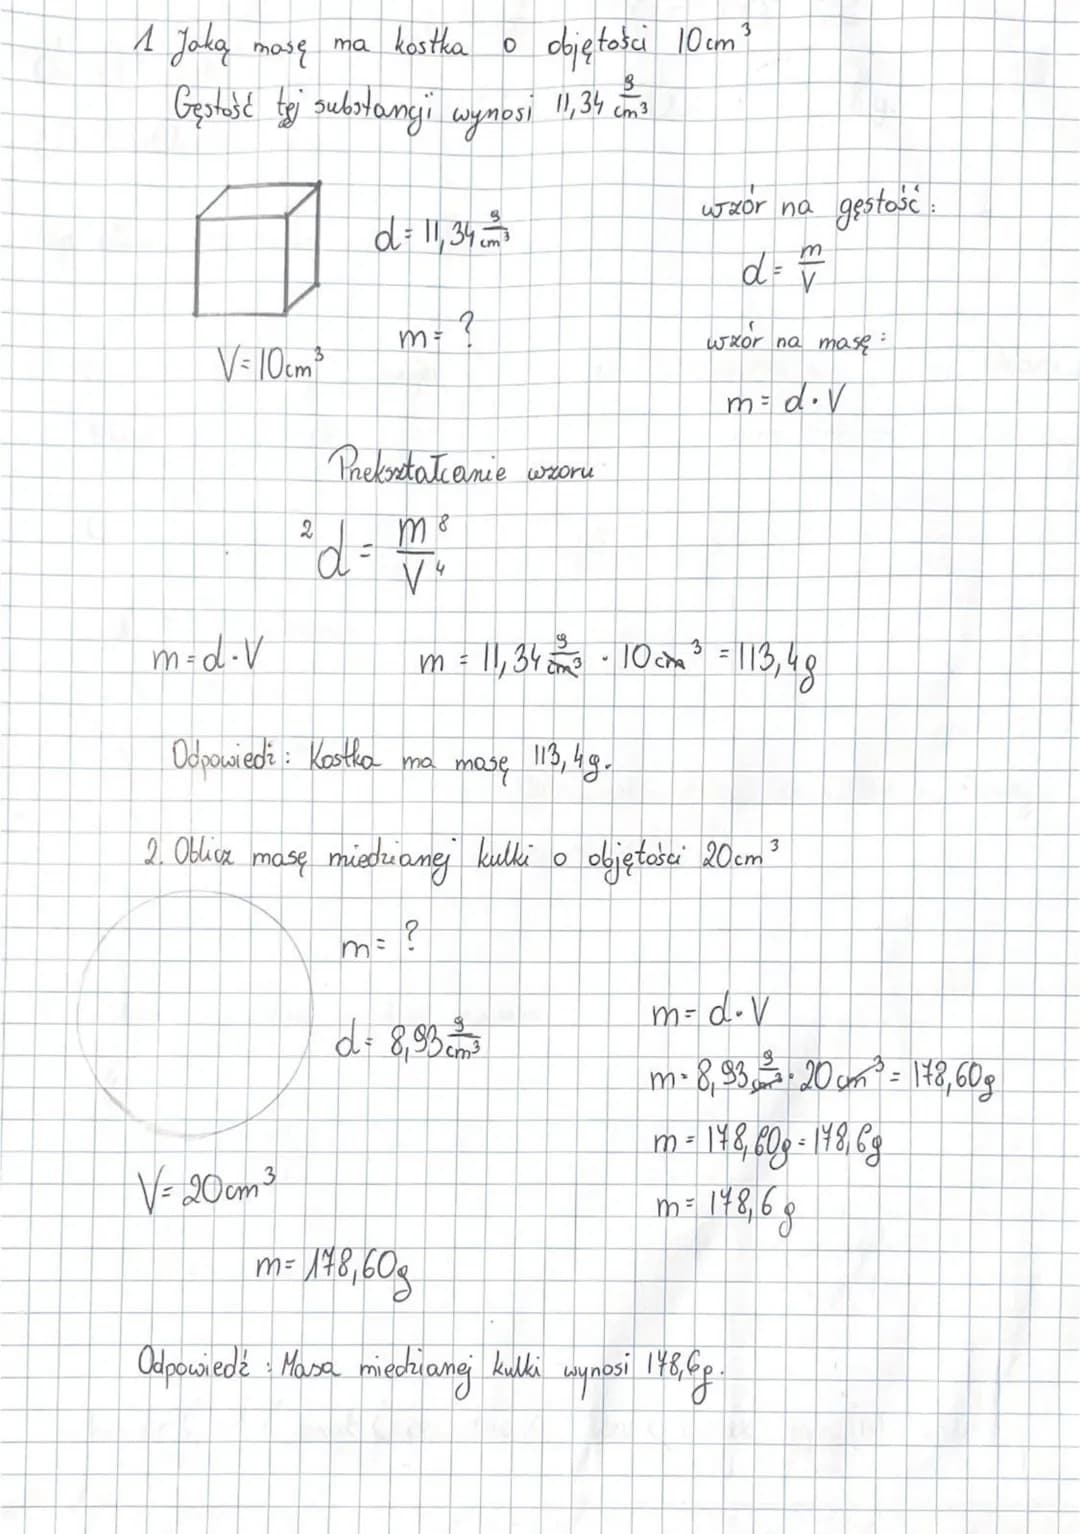 1 Jaką masę ma kostka o objętości 10cm³
Gęstość tej substancji wynosi 11,34 g/cm³
d = 11,34 g/cm³
wzór na gęstość:
d = m/V
m = ?
wzór na masę:
V = 10cm³
m = d · V
Przekształcanie wzoru
²d = m⁸/V⁴
m = d · V m = 11,34 g/cm³ · 10 cm³ = 113,4g
Odpowiedź: Kostka ma masę 113,4g.
2. Oblicz masę miedzianej kulki o objętości 20cm³
m = ?
m = d · V
d = 8,93 g/cm³
m = 8,93 g/cm³ · 20 cm³ = 178,60g
m = 178,60g = 178,6g
V = 20cm³
m = 178,6 g
m = 178,60g
Odpowiedź: Masa miedzianej kulki wynosi 178,6g.